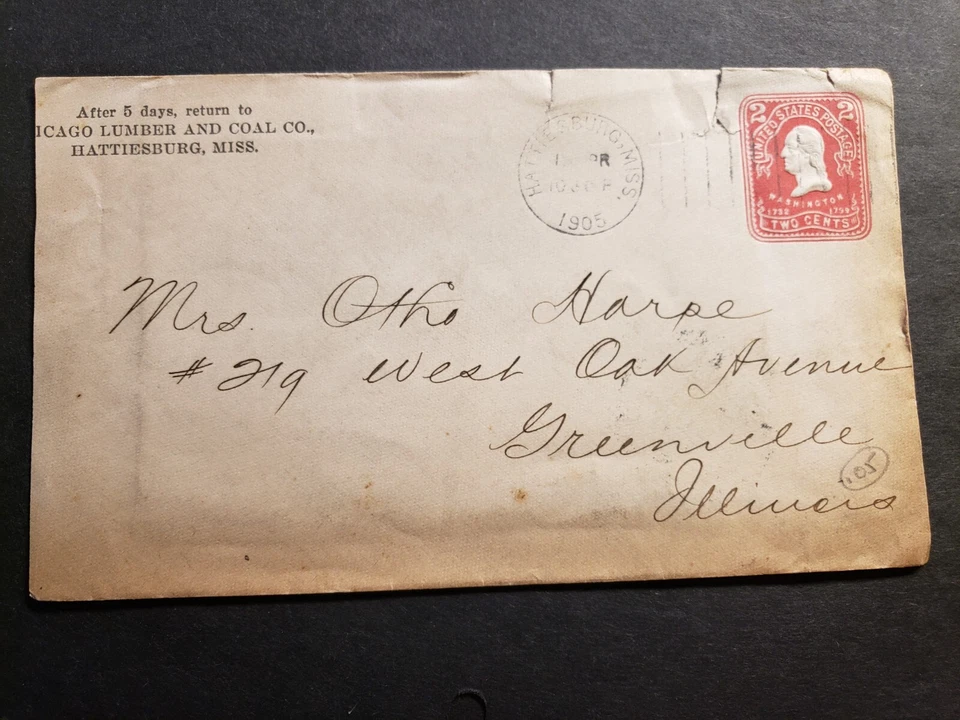 After 5 days, return to
ICAGO LUMBER AND COAL CO.,
HATTIESBURG, MISS.
HATTIESBURG, MISS.
1905
2 2
UNITED STATES POSTAGE
WASHINGTON
1732 1799
TWO CENTS
Mrs. Otho Harpe
# 219 West Oak Avenue
Greenville
Illinois
'05